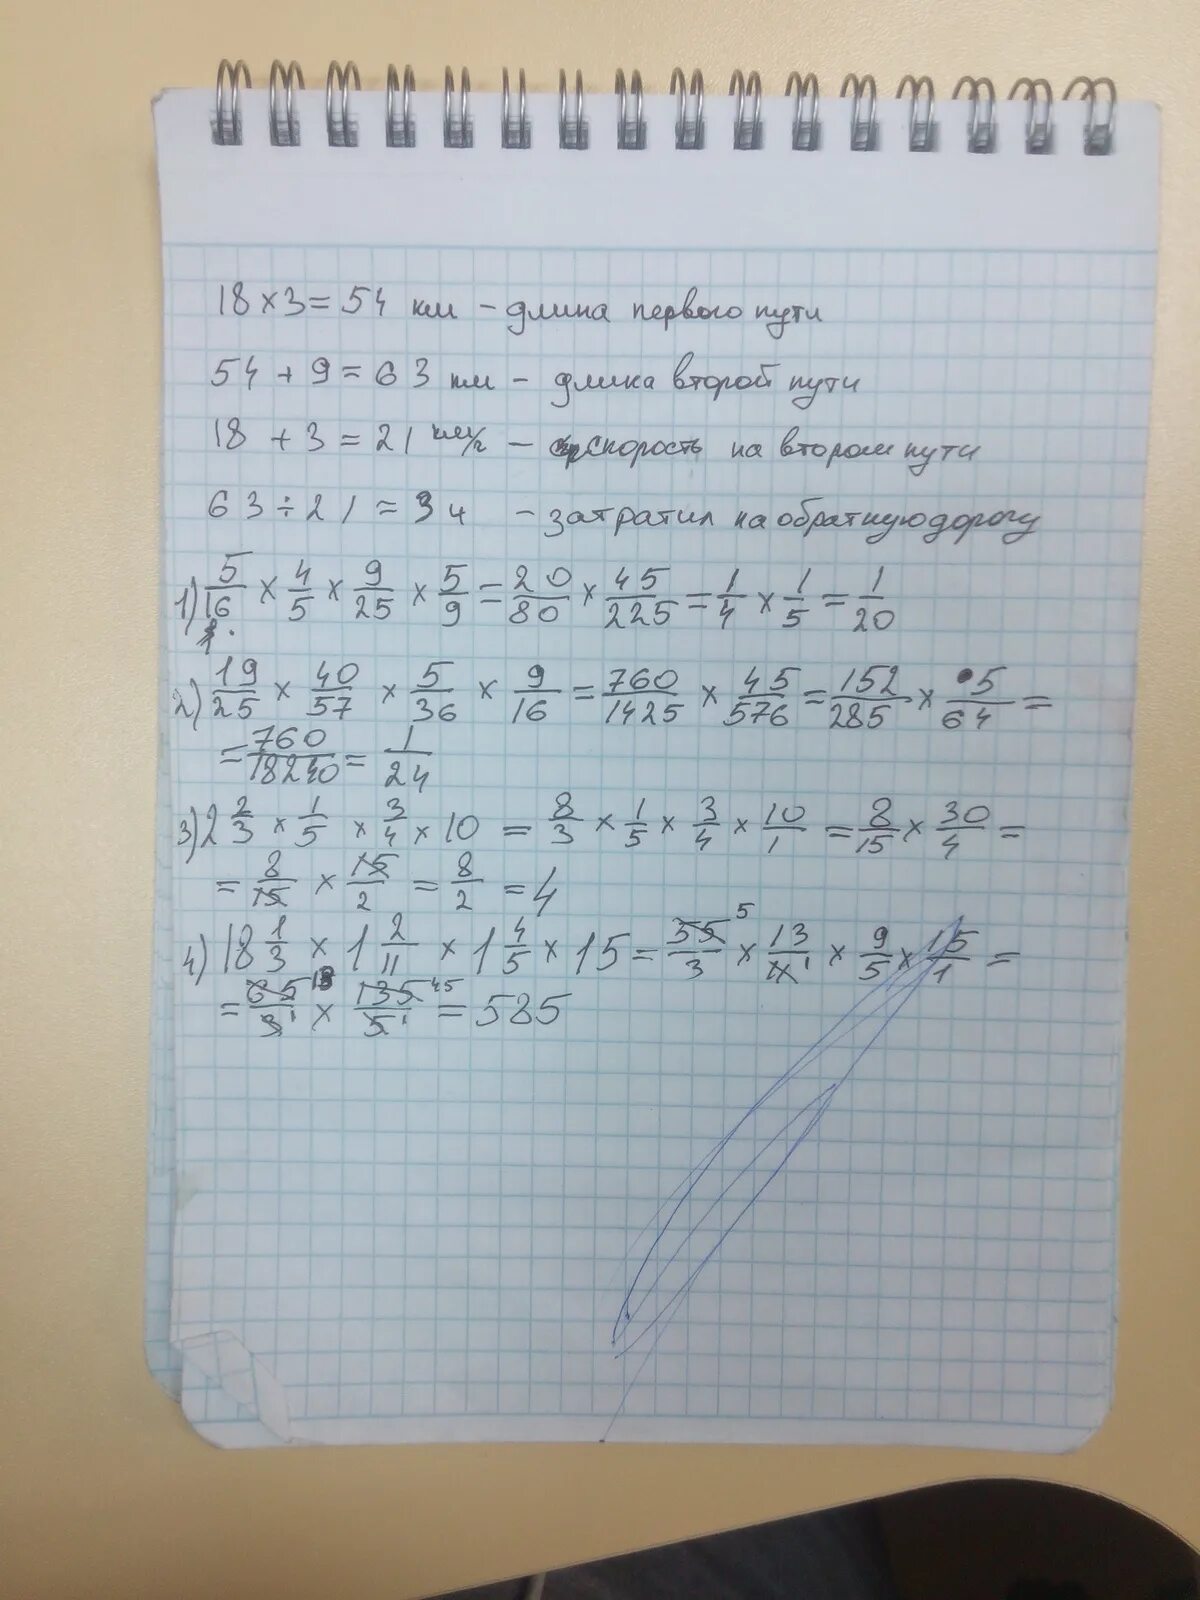 18 × 3 = 54 км – длина первого пути
54 + 9 = 63 км – длина второй пути
18 + 3 = 21 км/г – скорость на втором пути
63 ÷ 21 = 3 ч – затратил на обратную дорогу
1) 5/16 × 4/5 × 9/25 × 5/9 = 20/80 × 45/225 = 1/4 × 1/5 = 1/20
2) 19/25 × 40/57 × 5/36 × 9/16 = 760/1425 × 45/576 = 152/285 × 5/64 =
= 760/18240 = 1/24
3) 2 2/3 × 1/5 × 3/4 × 10 = 8/3 × 1/5 × 3/4 × 10/1 = 8/15 × 30/4 =
= 8/15 × 15/2 = 8/2 = 4
4) 18 1/3 × 1 2/11 × 1 4/5 × 15 = 55/3 5 × 13/11 1 × 9/5 × 15/1 =
= 65/3 13 1 × 135/5 45 1 = 585